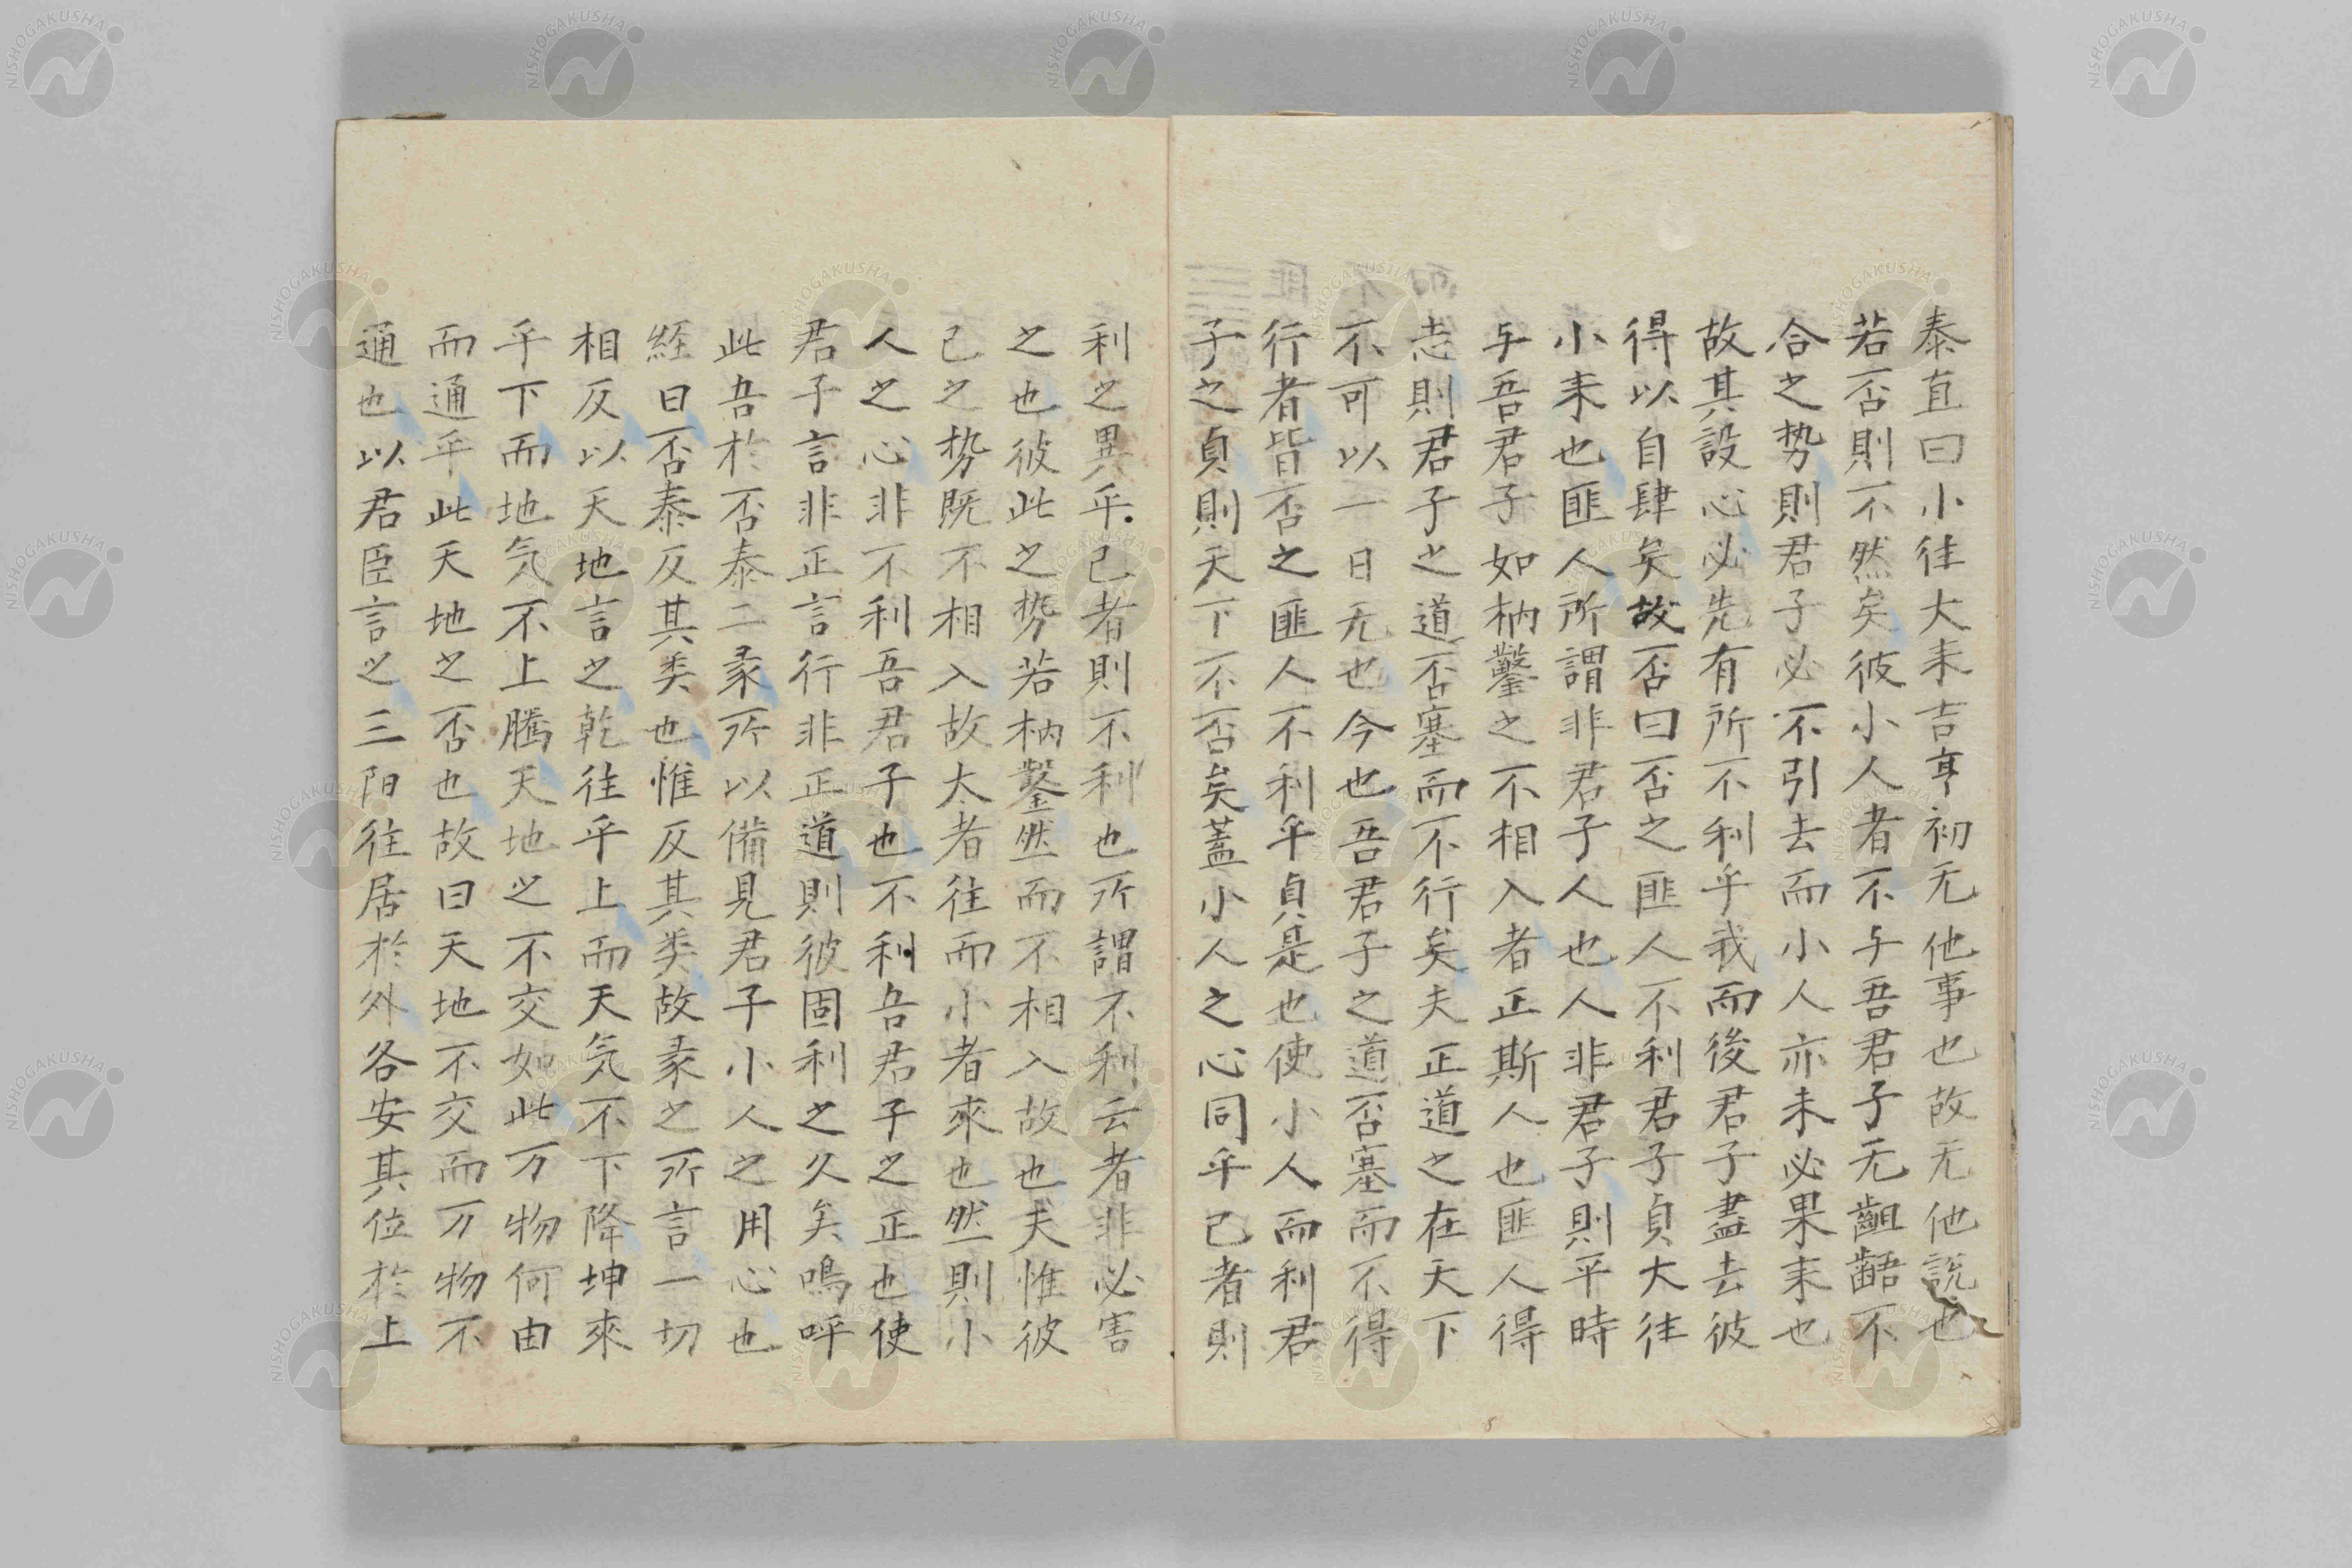 泰直曰小往大耒吉亨初无他事也故无他說也
若否則不然矣彼小人者不与吾君子无齟齬不
合之势則君子必不引去而小人亦未必果耒也
故其設心必先有所不利乎我而後君子盡去彼
得以自肆矣故否曰否之匪人不利君子貞大往
小耒也匪人所謂非君子人也人非君子則平時
与吾君子如枘鑿之不相入者正斯人也匪人得
志則君子之道否塞而不行矣夫正道之在天下
不可以一日无也今也吾君子之道否塞而不得
行者皆否之匪人不利乎貞是也使小人而利君
子之貞則天下不否矣蓋小人之心同乎己者則
利之異乎己者則不利也所謂不利云者非必害
之也彼此之势若枘鑿然而不相入故也夫惟彼
己之势既不相入故大者往而小者來也然則小
人之心非不利吾君子也不利吾君子之正也使
君子言非正言行非正道則彼固利之久矣鳴呼
此吾於否泰二彖所以備見君子小人之用心也
経曰否泰反其类也惟反其类故彖之所言一切
相反以天地言之乾往乎上而天気不下降坤來
乎下而地気不上騰天地之不交如此万物何由
而通乎此天地之否也故曰天地不交而万物不
通也以君臣言之三阳往居於外各安其位於上
NISHOGAKUSHA